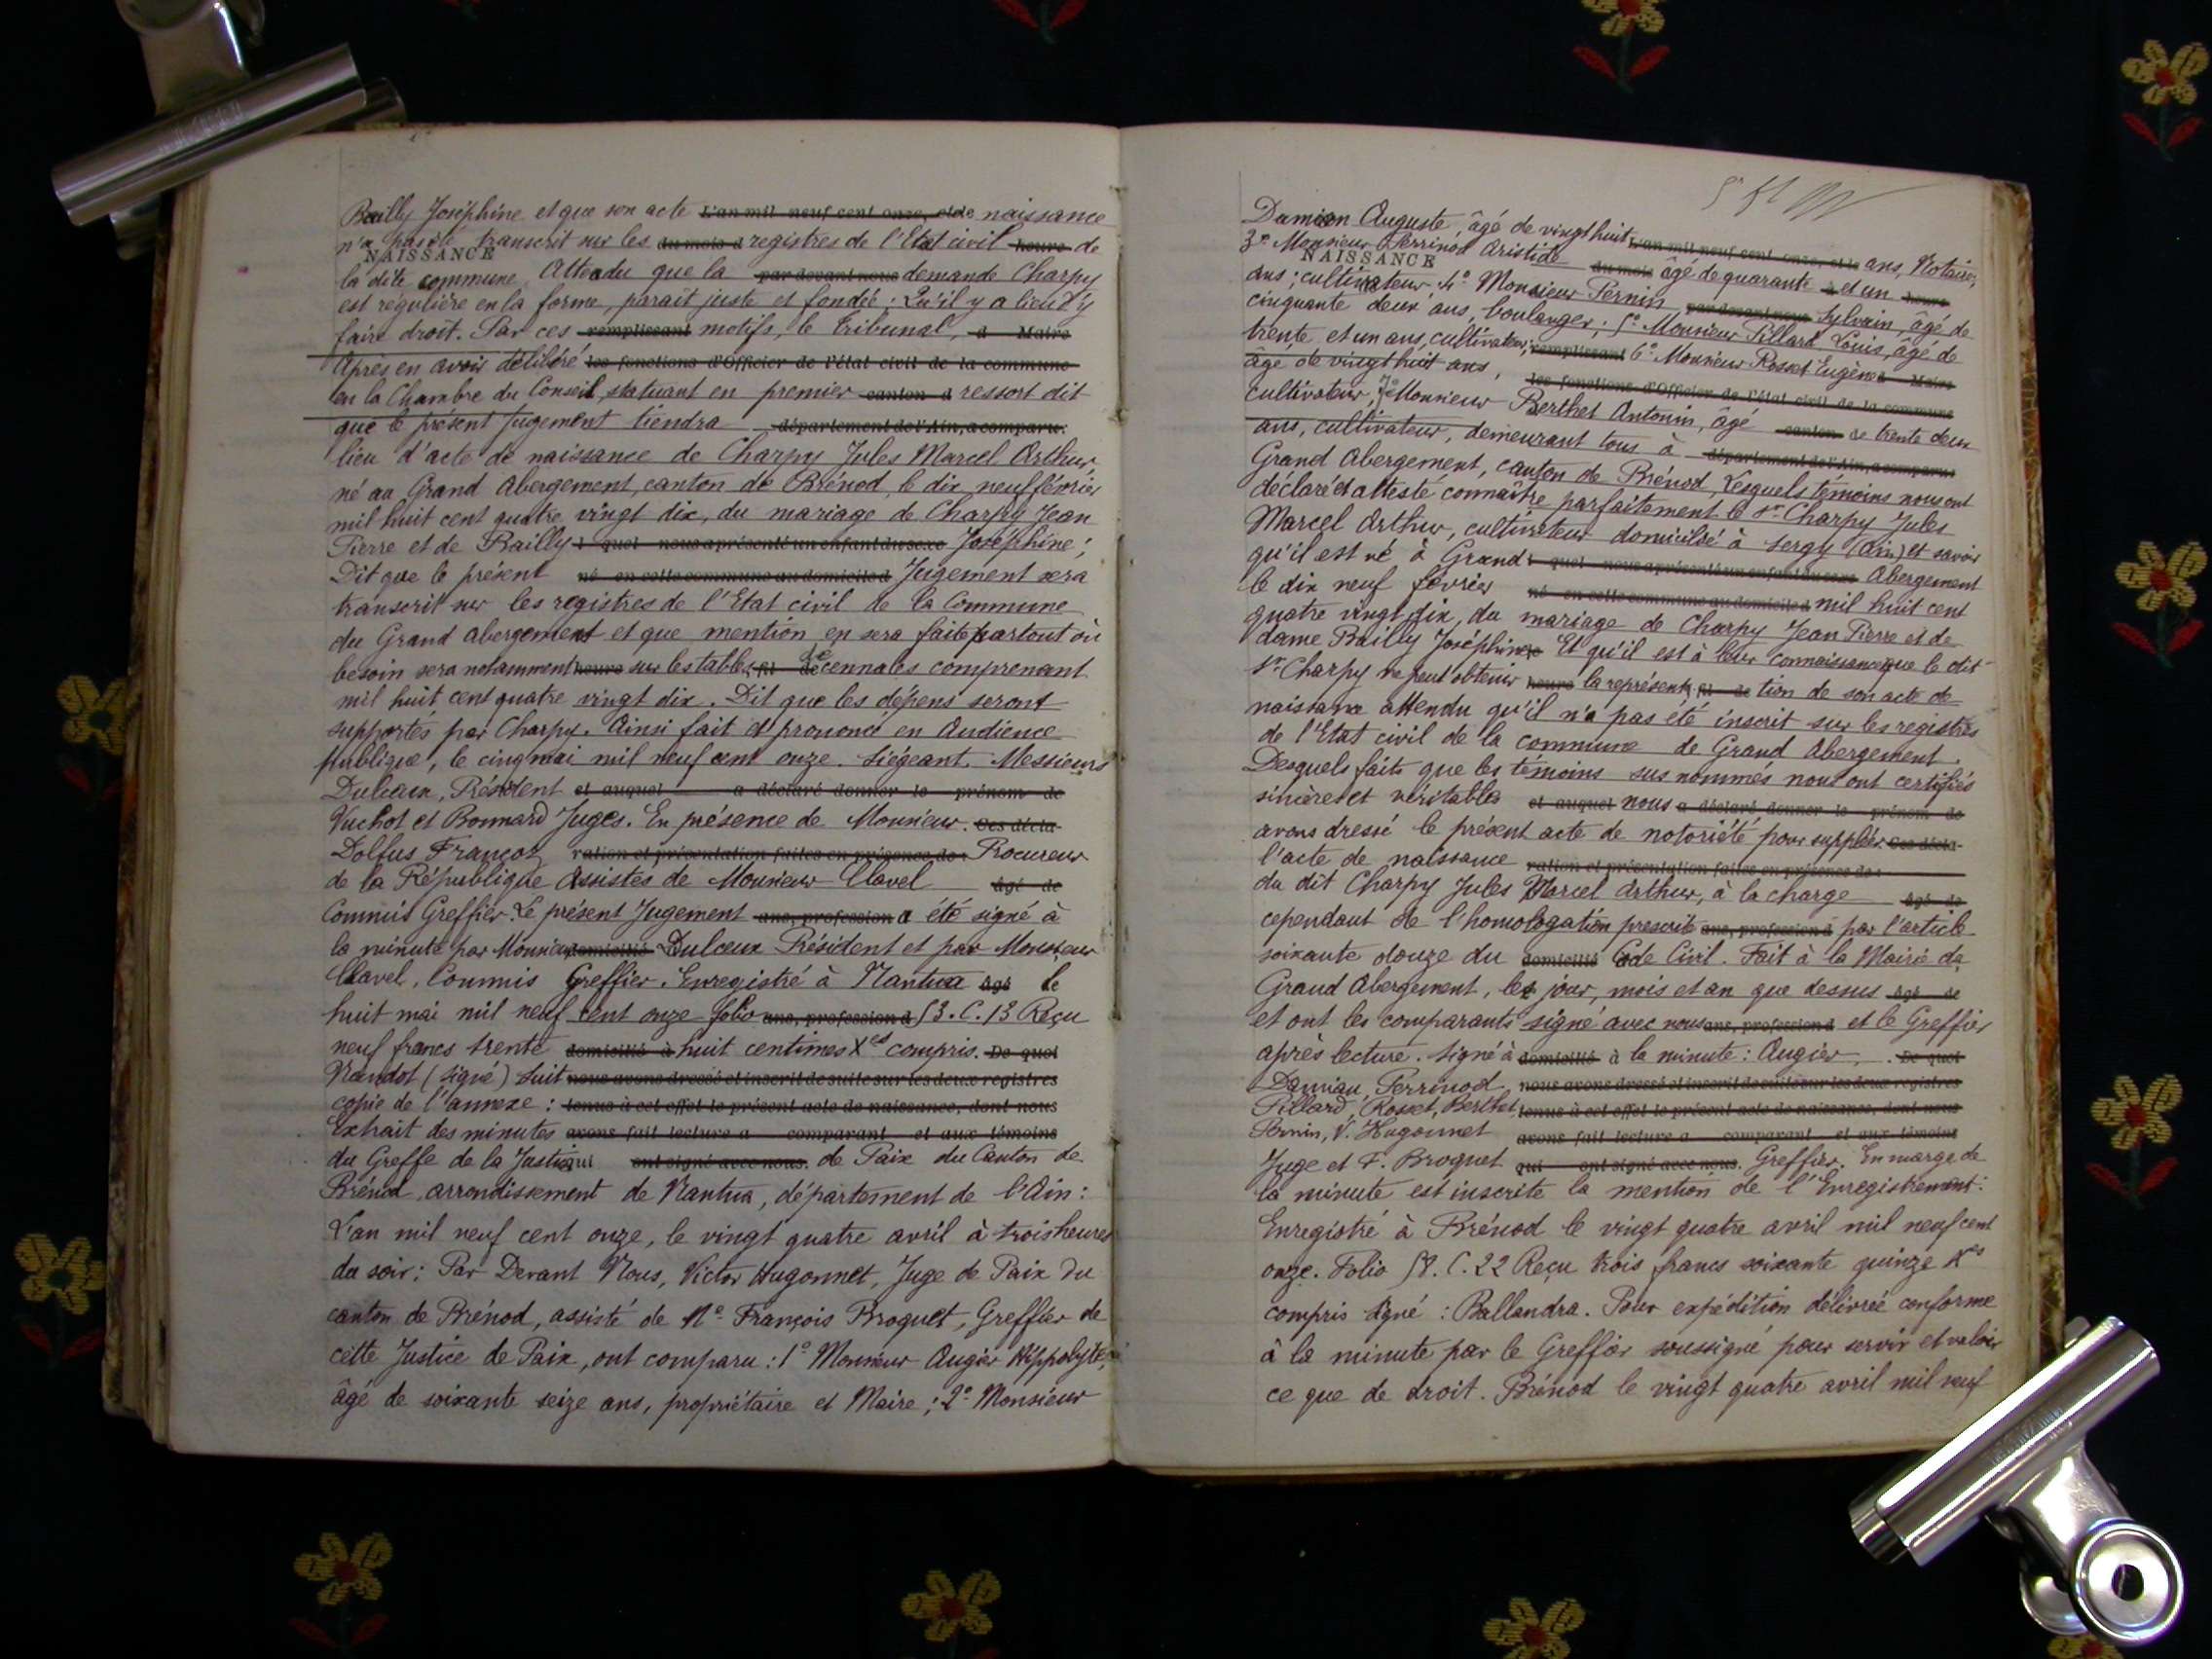 Bailly Joséphine et que son acte L'an mil neuf cent onze, et le de naissance
n'a pas été transcrit sur les du mois d registres de l'Etat civil heure de
NAISSANCE
la dite commune. Attendu que la par devant nous demande Charpy
est régulière en la forme, parait juste et fondée; Qu'il y a lieu d'y
faire droit. Par ces remplissant motifs, le Tribunal, a Maire
Après en avoir délibéré les fonctions d'Officier de l'état civil de la commune
en la Chambre du Conseil, statuant en premier canton d ressort dit
que le présent Jugement tiendra département de l'Ain, a comparu
lieu d'acte de naissance de Charpy Jules Marcel Arthur,
né au Grand Abergement, canton de Brénod, le dix neuf février
mil huit cent quatre vingt dix, du mariage de Charpy Jean
Pierre et de Bailly l quel nous a présenté un enfant du sexe Joséphine;
Dit que le présent né en cette commune au domicile d Jugement sera
transcrit sur les registres de l'Etat civil de la Commune
du Grand Abergement et que mention en sera faite partout où
besoin sera notamment heure sur les tables fil de décennales comprenant
mil huit cent quatre vingt dix. Dit que les dépens seront
supportés par Charpy. Ainsi fait et prononcé en Audience
publique, le cinq mai mil neuf cent onze. Siégeant Messieurs
Dulcaux, Président et auquel a déclaré donner le prénom de
Vuchot et Bonnard Juges. En présence de Monsieur. Ces décla-
Dolfus Françoz ration et présentation faites en présence de: Procureur
de la République Assistés de Monsieur Clavel âgé de
Commis Greffier. Le présent Jugement ans, profession d a été signé à
la minute par Monsieur domicilié Dulceux Président et par Monsieur
Clavel, Commis Greffier. Enregistré à Nantua âgé le
huit mai mil neuf cent onze folio ans, profession d 53. C. 13 Reçu
neuf francs trente domicilié à huit centimes Xes compris. De quoi
Nandot (signé) Suit nous avons dressé et inscrit de suite sur les deux registres
copie de l'annexe: tenus à cet effet le présent acte de naissance, dont nous
Extrait des minutes avons fait lecture a comparant et aux témoins
du Greffe de la Justi qui ont signé avec nous. de Paix du Canton de
Brénod, arrondissement de Nantua, département de l'Ain:
L'an mil neuf cent onze, le vingt quatre avril à trois heures
du soir: Par Devant Nous, Victor Hugonnet, Juge de Paix du
canton de Brénod, assisté de Me François Broquet, Greffier de
cette Justice de Paix, ont comparu: 1º Monsieur Augier Hippolyte,
âgé de soixante seize ans, propriétaire et Maire; 2º Monsieur
Damian Auguste, âgé de vingt huit L'an mil neuf cent onze, et le ans, Notaire;
3º Monsieur Perrinod Aristide du mois âgé de quarante à et un heure
NAISSANCE
ans; cultivateur 4º Monsieur Pernin par devant nous Sylvain, âgé de
cinquante deux ans, boulanger; 5º Monsieur Pillard Louis, âgé de
trente et un ans, cultivateur; remplissant 6º Monsieur Rosset Eugène Maire
âgé de vingt huit ans, les fonctions d'Officier de l'état civil de la commune
cultivateur, 7º Monsieur Berthet Antonin, âgé canton de trente deux
ans, cultivateur, demeurant tous à département de l'Ain, a comparu
Grand Abergement, canton de Brénod, Lesquels témoins nous ont
déclaré et attesté connaître parfaitement le sr Charpy Jules
Marcel Arthur, cultivateur domicilié à Sergy (Ain) et savoir
qu'il est né à Grand l quel nous a présenté un enfant du sexe Abergement
le dix neuf février né en cette commune au domicile d mil huit cent
quatre vingt dix, du mariage de Charpy Jean Pierre et de
dame Bailly Joséphine Et qu'il est à leur connaissance que le dit
sr Charpy ne peut obtenir heure la représenta fil de tion de son acte de
naissance attendu qu'il n'a pas été inscrit sur les registres
de l'Etat civil de la commune de Grand Abergement.
Desquels faits que les témoins sus nommés nous ont certifiés
sincères et véritables et auquel nous a déclaré donner le prénom de
avons dressé le présent acte de notoriété pour suppléer Ces décla-
l'acte de naissance ration et présentation faites en présence de:
du dit Charpy Jules Marcel Arthur, à la charge âgé de
cependant de l'homologation prescrite ans, profession d par l'article
soixante douze du domicilié Code Civil. Fait à la Mairie de
Grand Abergement, les jour, mois et an que dessus âgé de
et ont les comparants signé avec nous ans, profession d et le Greffier
après lecture. Signé à domicilié à la minute: Augier, De quoi
Damian, Perrinod, nous avons dressé et inscrit de suite sur les deux registres
Pillard, Rosset, Berthet, tenus à cet effet le présent acte de naissance, dont nous
Pernin, V. Hugonnet avons fait lecture a comparant et aux témoins
Juge et F. Broquet qui ont signé avec nous. Greffier. En marge de
la minute est inscrite la mention de l'Enregistrement:
Enregistré à Brénod le vingt quatre avril mil neuf cent
onze. Folio 58. C. 22 Reçu trois francs soixante quinze Xes
compris signé: Ballandra. Pour expédition délivrée conforme
à la minute par le Greffier soussigné pour servir et valoir
ce que de droit. Brénod le vingt quatre avril mil neuf